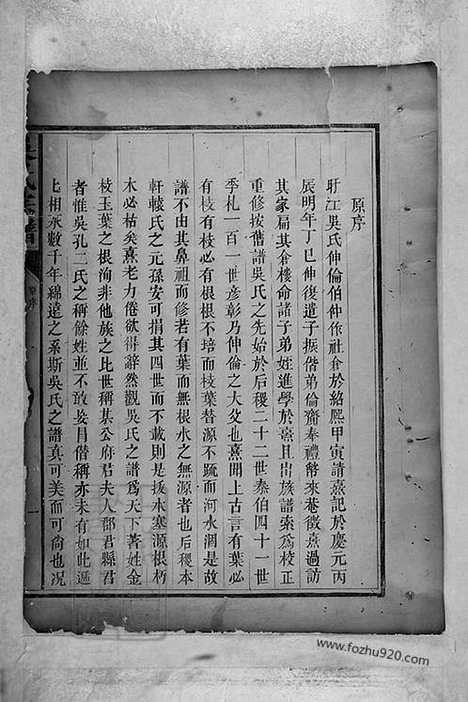 原序
盱江吳氏伸倫伯仲作社倉於紹熙甲寅請熹記於慶元丙
辰明年丁巳伸復遣子振偕弟倫齋奉禮幣來巷徵熹過訪
其家扁其倉樓命諸子弟姪進學於熹且出族譜索為校正
重修按舊譜吳氏之先始於后稷二十二世泰伯四十一世
季札一百一世彥彰乃伸倫之大父也熹聞上古言有葉必
有枝有枝必有根根不培而枝葉替源不疏而河水涸是故
譜不由其鼻祖而修者有葉而無根水之無源者也后稷本
軒轅氏之元孫安可捐其四世而不載則是拔木塞源根朽
木必枯矣熹老力倦欲得辭然觀吳氏之譜為天下著姓金
枝玉葉之根洵非他族之比世稱某公府君夫人郡君縣君
者惟吳孔二氏之稱餘姓並不敢妄冒僭稱亦未有如此遞
七相承數千年綿遠之系斯吳氏之譜真可美而可尚也况
www.fozhu920.com